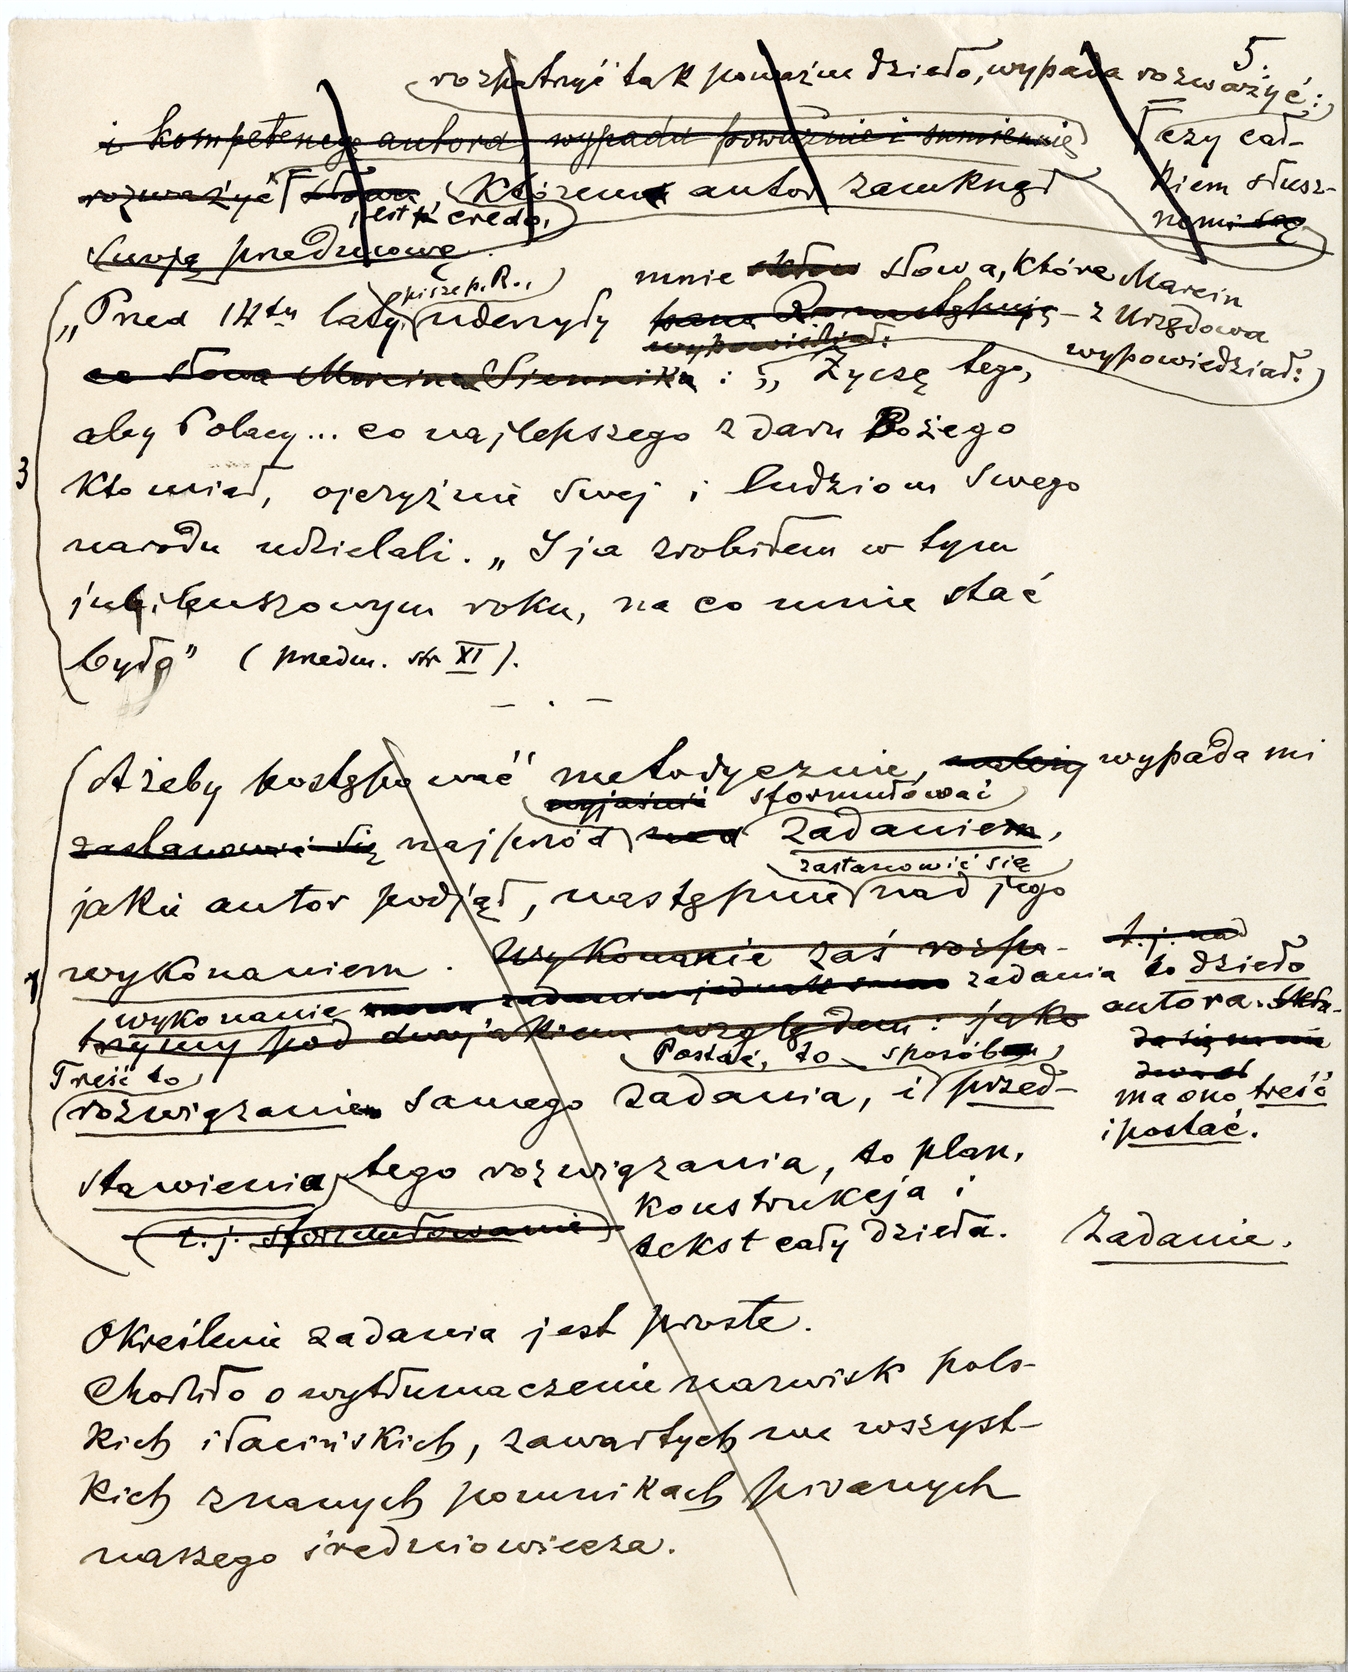 5.
rozpatrzyć tak poważne dzieło, wypada rozważyć:
i kompetenego autora wypada poważnie i sumiennie
czy cał-
rozważyć słowa któremi autor zamknął
kiem słusz-
jest to credo,
nemi są
swoją przedmowę.
pisze p. R.,
mnie słowa, które Marcin
„Przed 14tu laty uderzyły pana Rostafińskiego
z Urzędowa
wypowiedział:
wypowiedział:
co słowa Marcina Siennika : „Życzę tego,
aby Polacy... co najlepszego z daru Bożego
3
kto miał, ojczyźnie swej i ludziom swego
narodu udzielali. „I ja zrobiłem w tym
jubileuszowym roku, na co mnie stać
było” (przedm. str XI).
— . —
Ażeby postępować metodycznie, należy wypada mi
wyjaśnić sformułować
zastanowić się najprzód nad zadaniem,
zastanowić się
jakie autor podjął, następnie nad jego
t.j. nad
wykonaniem. Wykonanie zaś rozpa-
1
wykonanie zadania jednak zadania to dzieło
trzymy pod dwojakiem względem: jako
autora. Skła-
da się na nie
Postać, to sposób
Treść to
ma ono treść
rozwiązanie samego zadania, i przed-
i postać.
stawienia tego rozwiązania, to plan,
konstrukcja i
(t.j. sformułowanie)
tekst cały dzieła.
Zadanie.
Określenie zadania jest proste.
Chodziło o wytłumaczenie nazwisk pols-
kich i łacińskich, zawartych we wszyst-
kich znanych pomnikach pisanych
naszego średniowiecza.